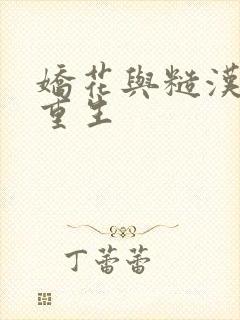 嬌花與糙漢
重生
丁蕾蕾